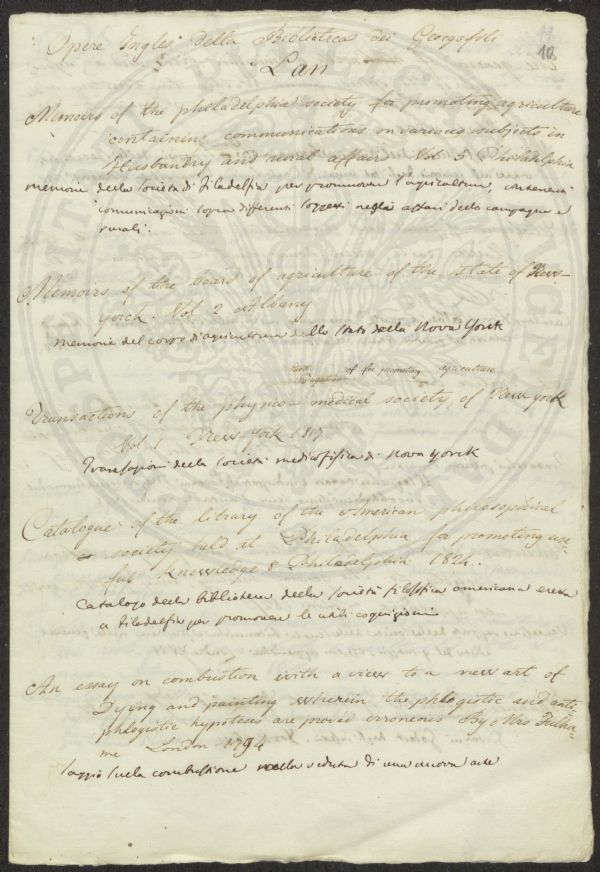 10
Opere Inglesi della Biblioteca dei Georgofili
Memoirs of the philadelphia society for promoting agriculture
containing communications on various subjects in
Husbandry and rural affairs Vol 5 Philadelphia
memorie della società di Filadelfia per promuovere l'agricoltura, contenenti
comunicazioni sopra differenti soggetti negli affari della campagna e
rurali.
Memoirs of the board of agriculture of the state of New-
yorck. Vol 2 Albany
memorie del corpo di agricoltura dello stato della Nova Yorck
of for promoting Agriculture
Transactions of the physico-medical society of New-york
Vol. 1 New York 1817
Transazioni della società medicofisica di Nova Yorck
Catalogue of the library of the American philosophical
society held at Philadelphia for promoting use-
full knowledge Philadelphia 1824.
Catalogo della biblioteca della società filosofica americana eretta
a Filadelfia per promovere le utili cognizioni
An essay on combustion with a view to a new art of
Dying and painting wherein the phlogistic and anti-
phlogistic hypoteses are proved erroneous By Mrs Fulha-
me London 1794
Saggio sulla combustione nella veduta di una nuova arte